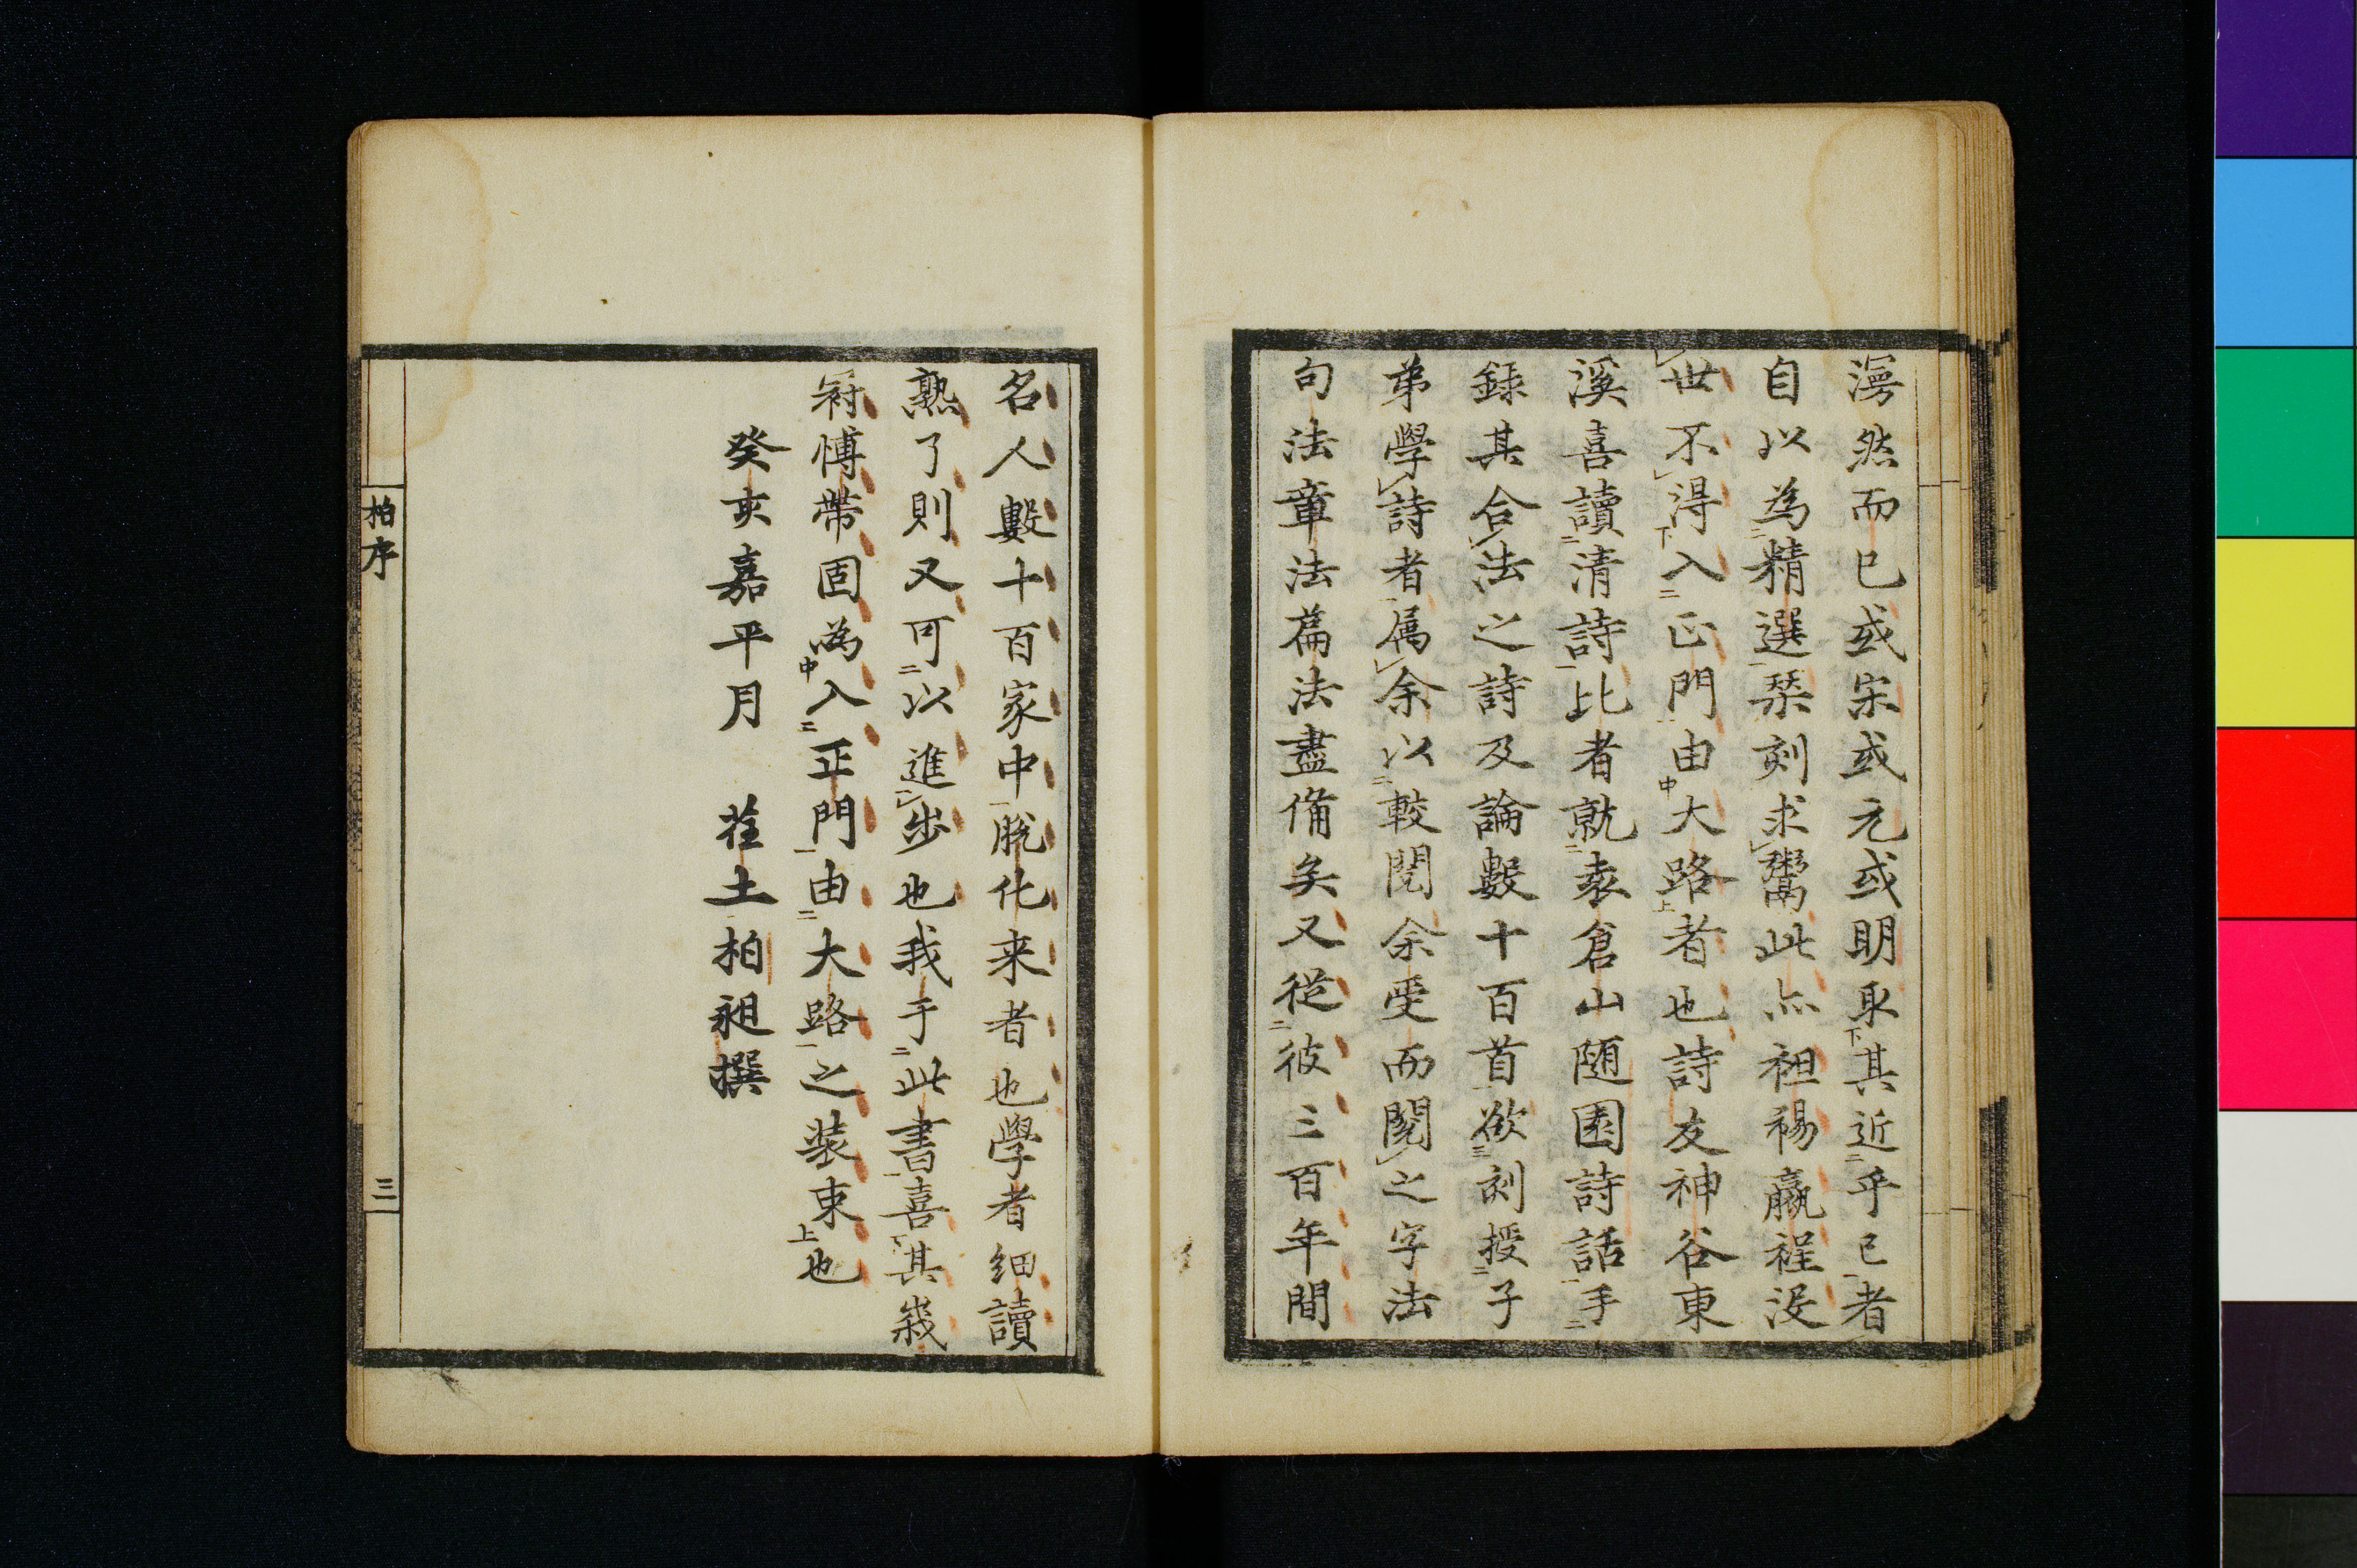 漫然而已或宋或元或明取其近乎己者
自以為精選栞刻求鬻此亦袒裼臝裎没
世不得入正門由大路者也詩友神谷東
溪喜讀清詩比者就袁倉山随園詩話手
録其合法之詩及論數十百首欲刻授子
弟學詩者属余以較閲余受而閲之字法
句法章法篇法盡備矣又從彼三百年間
名人數十百家中脱化来者也學者細讀
熟了則又可以進步也我手此書喜其裁
冠博帯固為入正門由大路之装束也
癸亥嘉平月 荏土柏昶撰
柏序
三